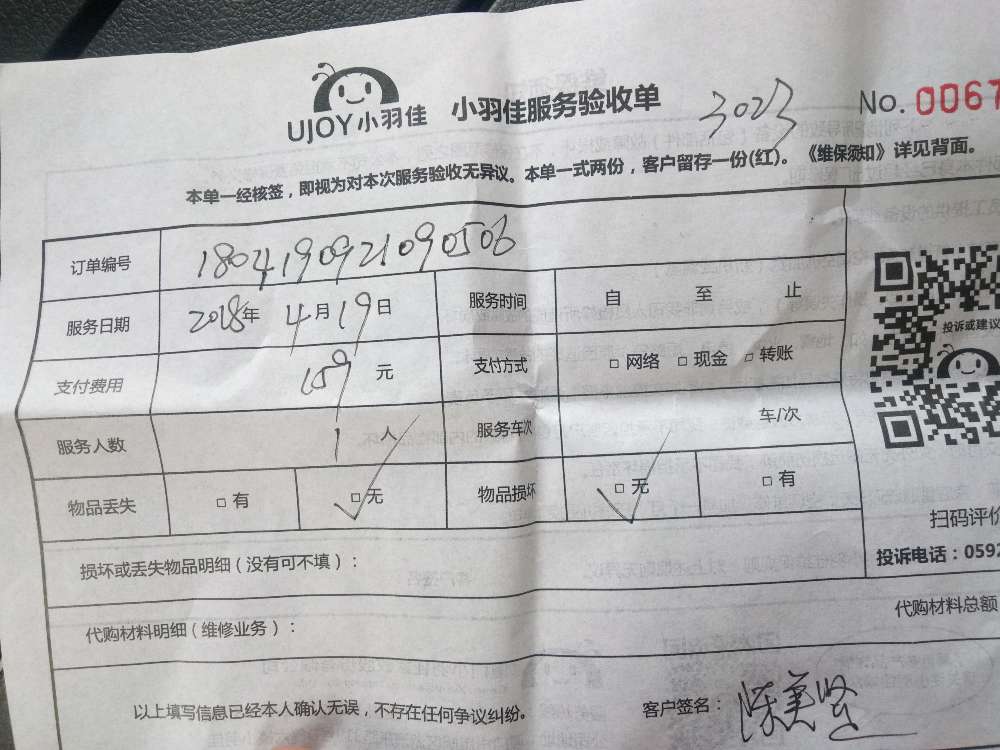 UJOY小羽佳 小羽佳服务验收单 3023 No. 0067
本单一经核签，即视为对本次服务验收无异议。本单一式两份，客户留存一份(红)。《维保须知》详见背面。
订单编号 1804190921090506
服务日期 2018年 4月19日 服务时间 自 至 止
投诉或建议
支付费用 159 元 支付方式 □ 网络 □ 现金 □ 转账
服务人数 1 人 服务车次 车/次
物品丢失 □ 有 □ 无 物品损坏 □ 无 □ 有
扫码评价
损坏或丢失物品明细（没有可不填）：
投诉电话：0592
代购材料明细（维修业务）：
代购材料总额
以上填写信息已经本人确认无误，不存在任何争议纠纷。 客户签名：陈美坚